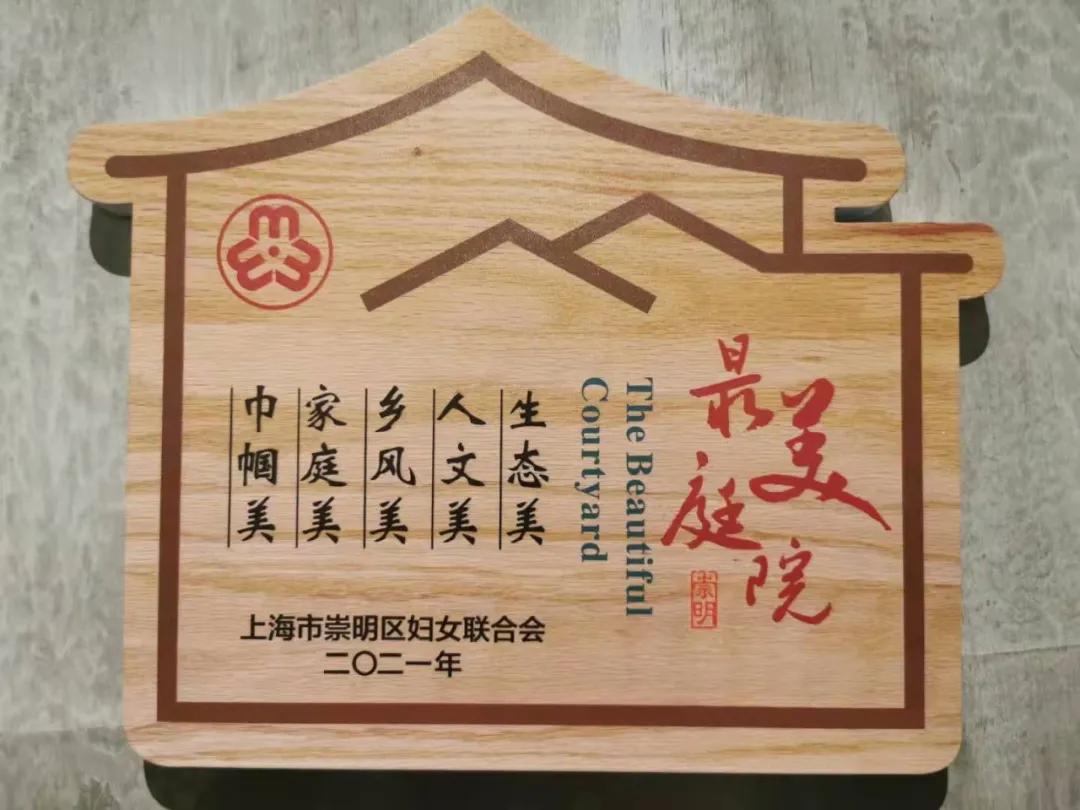 最美庭院
崇明
The Beautiful
Courtyard
生态美
人文美
乡风美
家庭美
巾帼美
上海市崇明区妇女联合会
二〇二一年